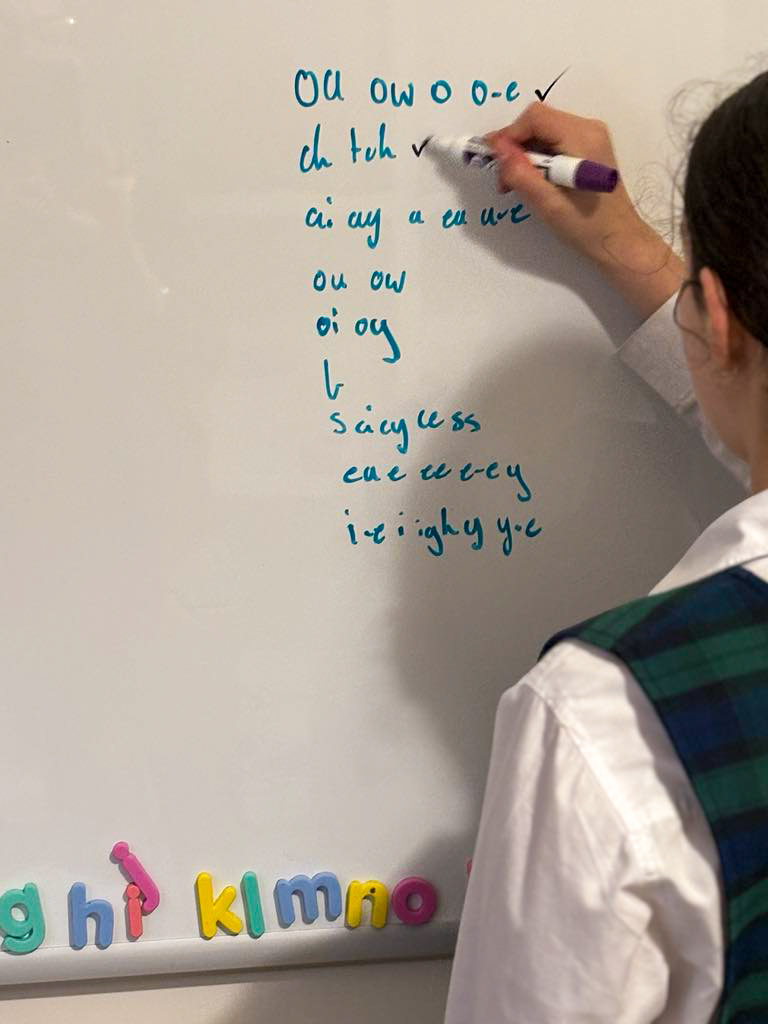 oa ow o o-e ✓
ch tch ✓
ai ay a ea a-e
ou ow
oi oy
s ci cy ce ss
ea e ee e-e y
i-e i igh y y-e
g h i j k l m n o